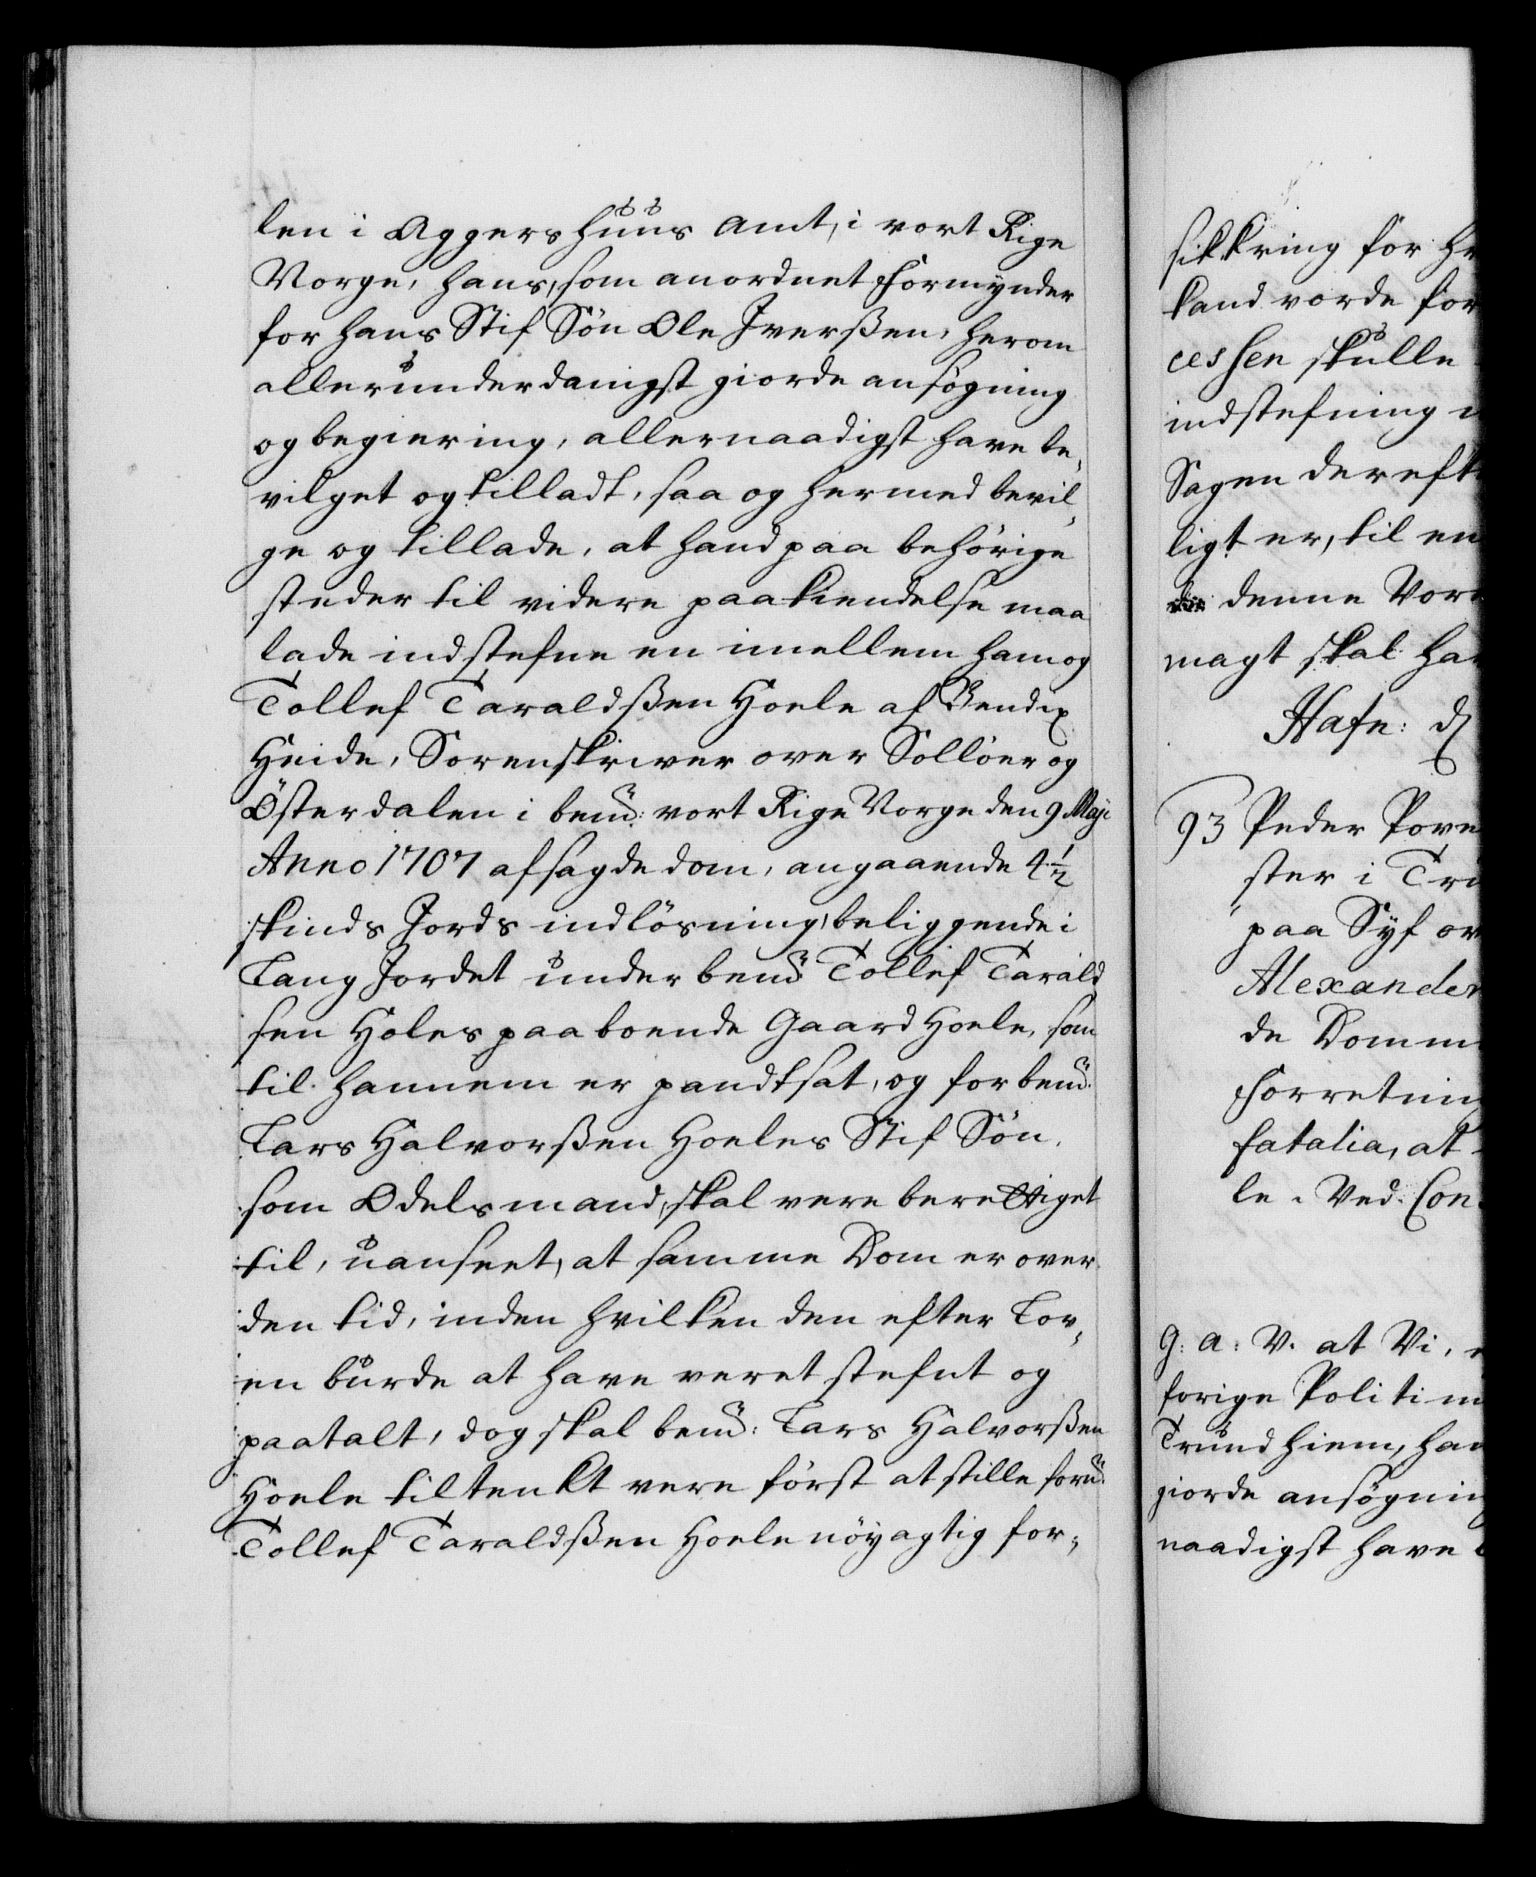 len i Aggershuus Amt, i vort Rige
Norge, hans, som anordnet Formynder
for hans Stif Søn Ole Jverßen, herom
allerunderdanigst giorde ansøgning
og begiering, allernaadigst have be„
vilget og tilladt, saa og hermed bevil„
ge og tillade, at hand paa behörige
steder til videre paakiendelse maa
lade indstefne en imellem ham og
Tollef Taraldßen Hoele af Bendix
Heide, Sorenskriver over Sollöer og
Österdalen i bem: vort Rige Norge den 9 Maji
Anno 1707 afsagde dom, angaaende 4 1/2
skinds Jords indlösning, beliggende i
Lang Jordet under bem: Tollef Tarald
sen Holes paaboende Gaard Hoele, som
til hannem er pandtsat, og for bem:
Lars Halvorßen Hoeles Stif Søn,
som Odelsmand, skal vere berettiget
til, uanseet, at samme Dom er over
den tid, inden hvilken den efter Lov„
en burde at have veret stefnt og
paatalt, dog skal bem: Lars Halvorßen
Hoele tiltenkt vere först at stille for:
Tollef Taraldßen Hoele nöyagtig for„
sikkring for
kand vorde for
cessen skulle
indstefning
Sagen dereft
ligt er, til en
denne Vor
magt skal ha
Hafn: d
93 Peder Pove
ster i Tr
paa Syf ov
Alexander
de Domm
Forretnin
fatalia, at
le. Ved. Con
G: A: V. at Vi,
forige Politim
Trundhiem, ha
giorde ansøgnin
naadigst have